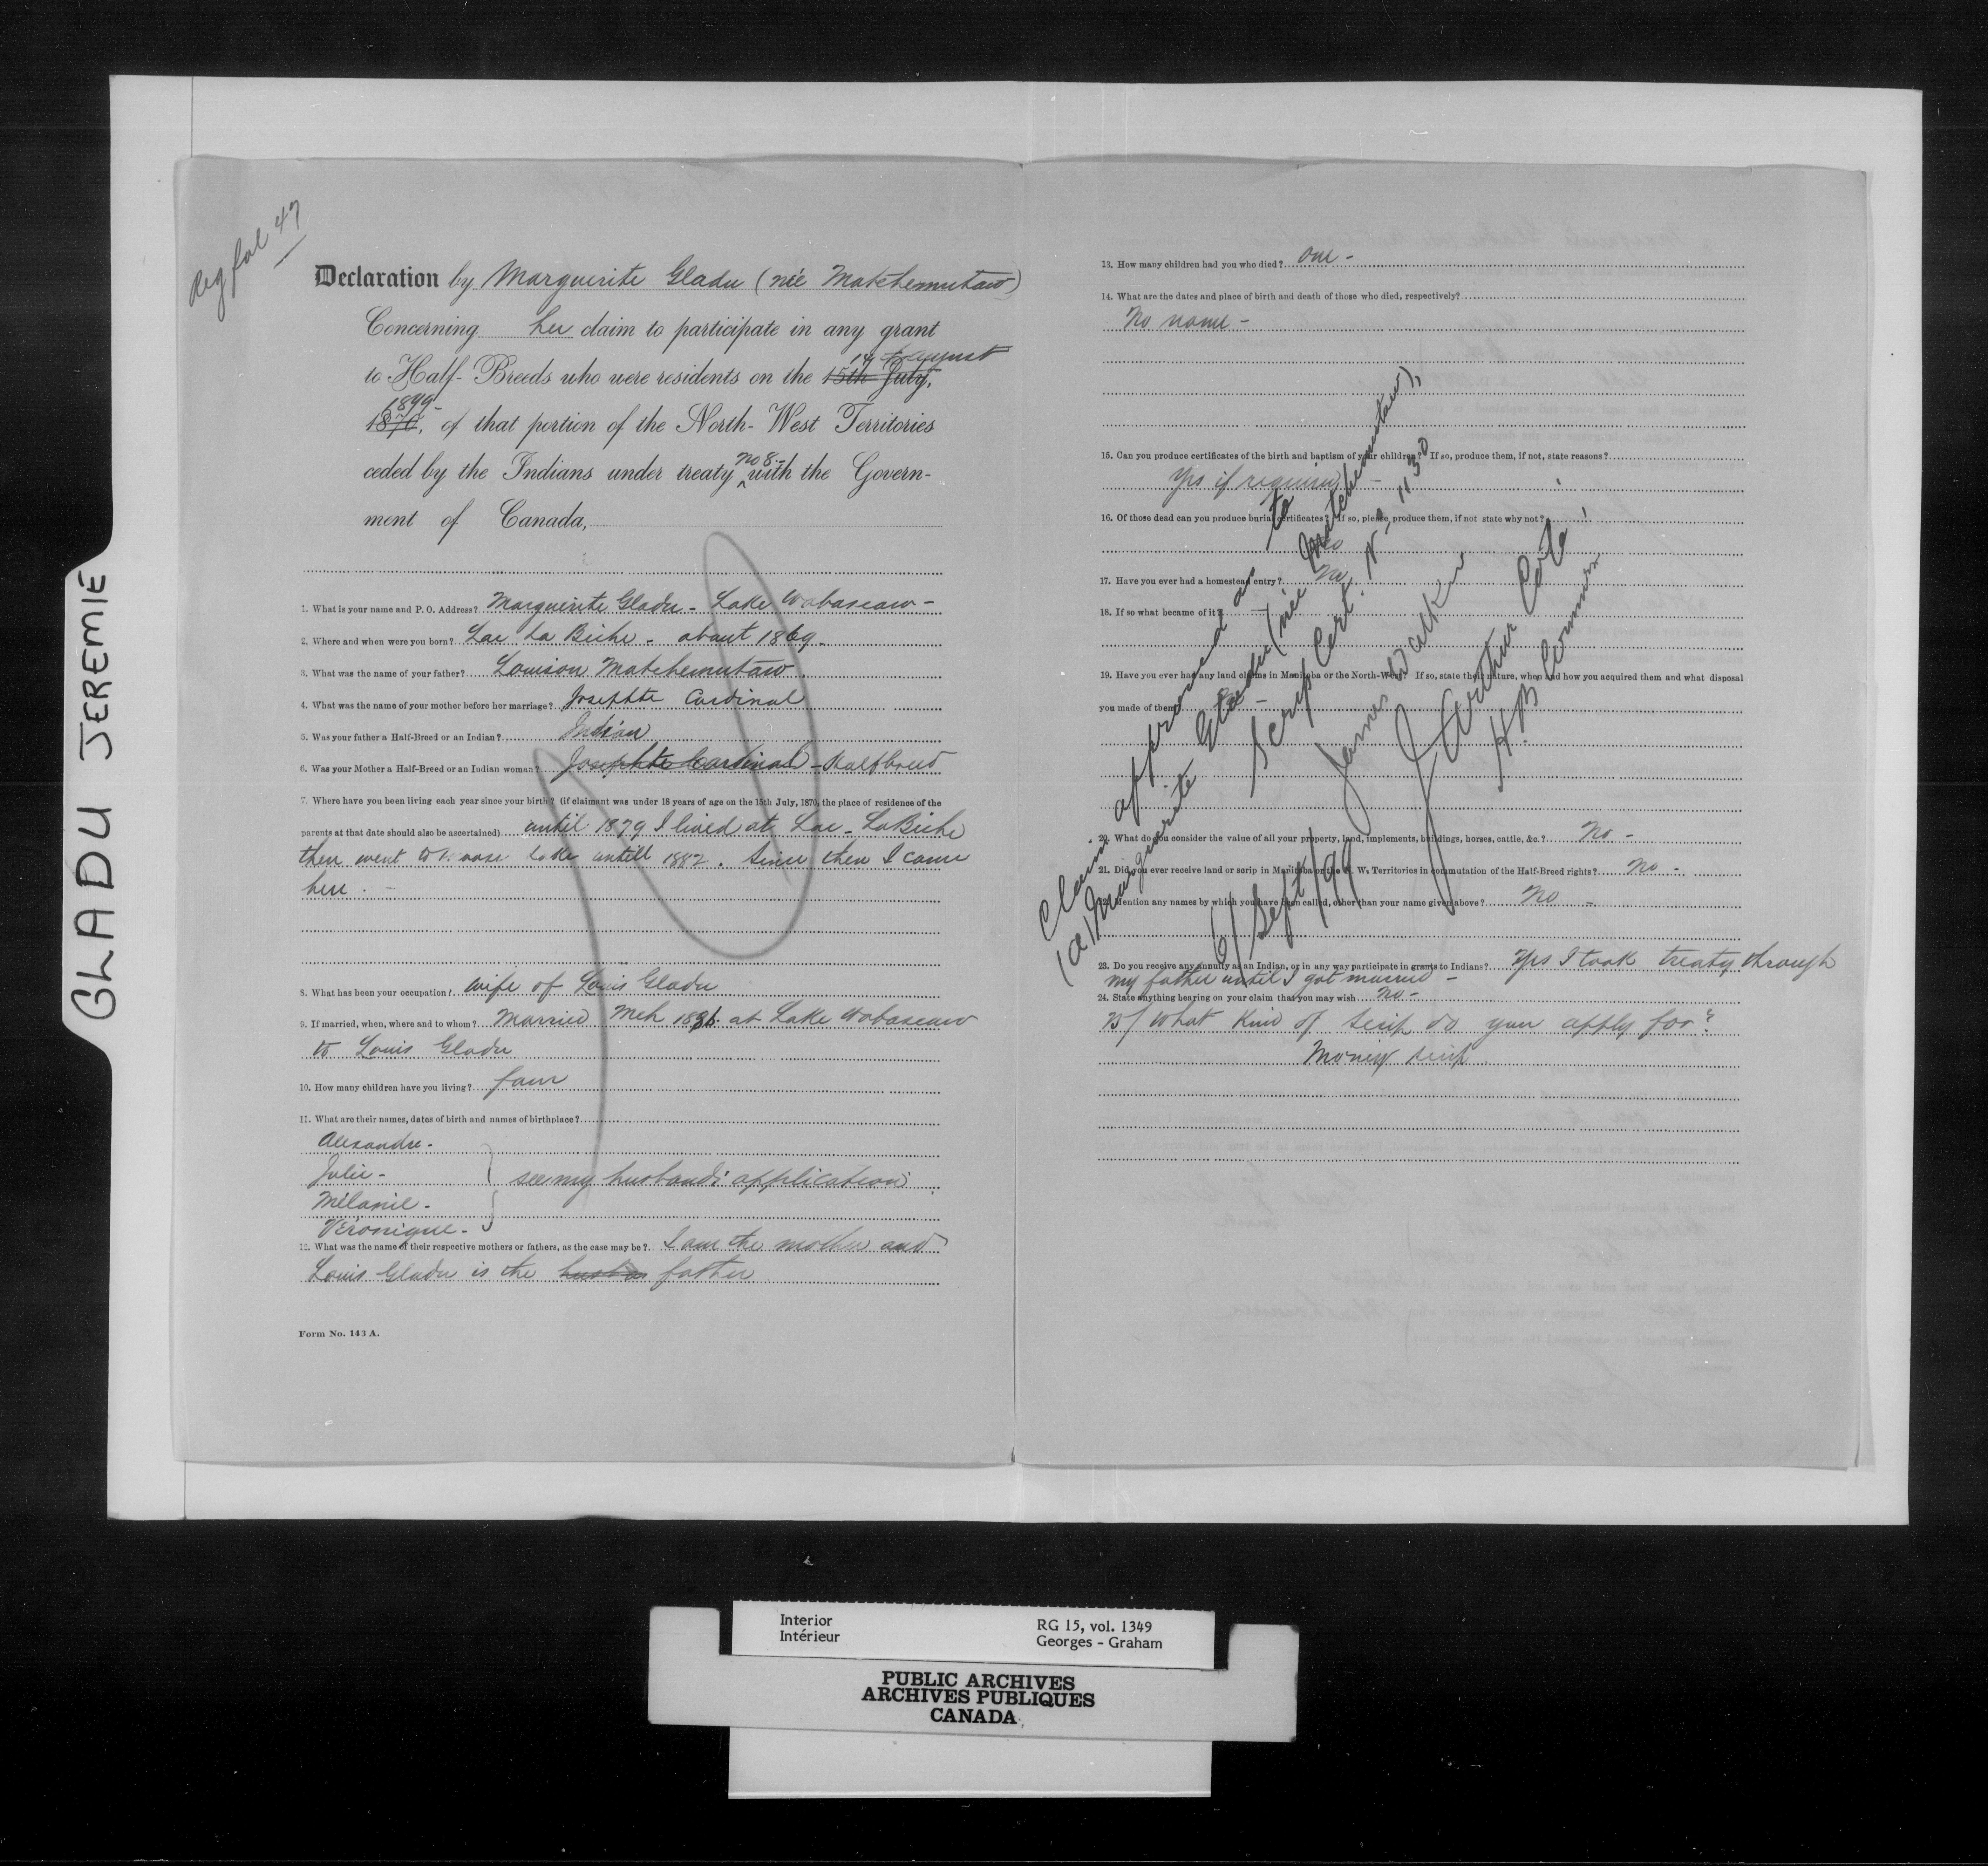 GLADU JEREMIE
Reg fol 47
Declaration by Marguerite Gladu (née Matchemutaw)
Concerning her claim to participate in any grant
14th August
to Half-Breeds who were residents on the 15th July,
1899
1870, of that portion of the North-West Territories
no 8
ceded by the Indians under treaty ^ with the Govern-
ment of Canada,
1. What is your name and P. O. Address? Marguerite Gladu - Lake Wabascaw -
2. Where and when were you born? Lac La Biche - about 1869.
3. What was the name of your father? Louison Matchemutaw.
4. What was the name of your mother before her marriage? Josephte Cardinal
5. Was your father a Half-Breed or an Indian? Indian
6. Was your Mother a Half-Breed or an Indian woman? Josephte Cardinal - Halfbreed
7. Where have you been living each year since your birth? (if claimant was under 18 years of age on the 15th July, 1870, the place of residence of the
parents at that date should also be ascertained) until 1879 I lived at Lac-LaBiche
then went to Moose lake untill 1882. Since then I came
here. -
8. What has been your occupation? wife of Louis Gladu
9. If married, when, where and to whom? Married Mch 1886 at Lake Wabascaw
to Louis Gladu
10. How many children have you living? four
11. What are their names, dates of birth and names of birthplace?
Alexandre -
Julie -
see my husband's application
Mélanie -
Véronique -
12. What was the name of their respective mothers or fathers, as the case may be? I am the mother and
Louis Gladu is the father
Form No. 143 A.
13. How many children had you who died? one -
14. What are the dates and place of birth and death of those who died, respectively?
No name -
15. Can you produce certificates of the birth and baptism of your children? If so, produce them, if not, state reasons?
Yes if required -
16. Of those dead can you produce burial certificates? If so, please, produce them, if not state why not?
No
17. Have you ever had a homestead entry? No
18. If so what became of it? -
19. Have you ever had any land claims in Manitoba or the North-West? If so, state their nature, when and how you acquired them and what disposal
you made of them? No -
20. What do you consider the value of all your property, land, implements, buildings, horses, cattle, &c.? No -
21. Did you ever receive land or scrip in Manitoba or the N. W. Territories in commutation of the Half-Breed rights? No -
22. Mention any names by which you have been called, other than your name given above? No -
23. Do you receive any annuity as an Indian, or in any way participate in grants to Indians? Yes I took treaty through
my father until I got married -
24. State anything bearing on your claim that you may wish No -
25/ What kind of scrip do you apply for?
Money scrip
Claim approved as to
(a) Marguerite Gladu (née Matchemutaw),
Scrip Cert. No 1130
6/Sept/99
James Walker
J Arthur Coté
H.B. Commrs
Interior
Intérieur
RG 15, vol. 1349
Georges - Graham
PUBLIC ARCHIVES
ARCHIVES PUBLIQUES
CANADA